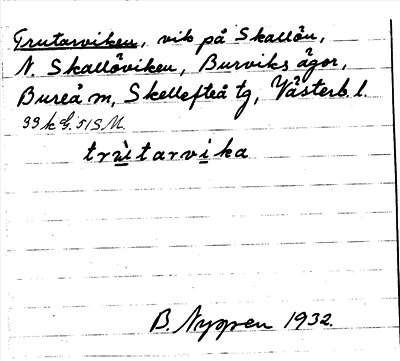 Trutarviken, vik på Skallön,
N. Skallöviken, Burviks ägor,
Bureå m, Skellefteå tg, Västerb. l.
99 k G. 51 S M.
trùtarvika
B. Nyppen 1932.